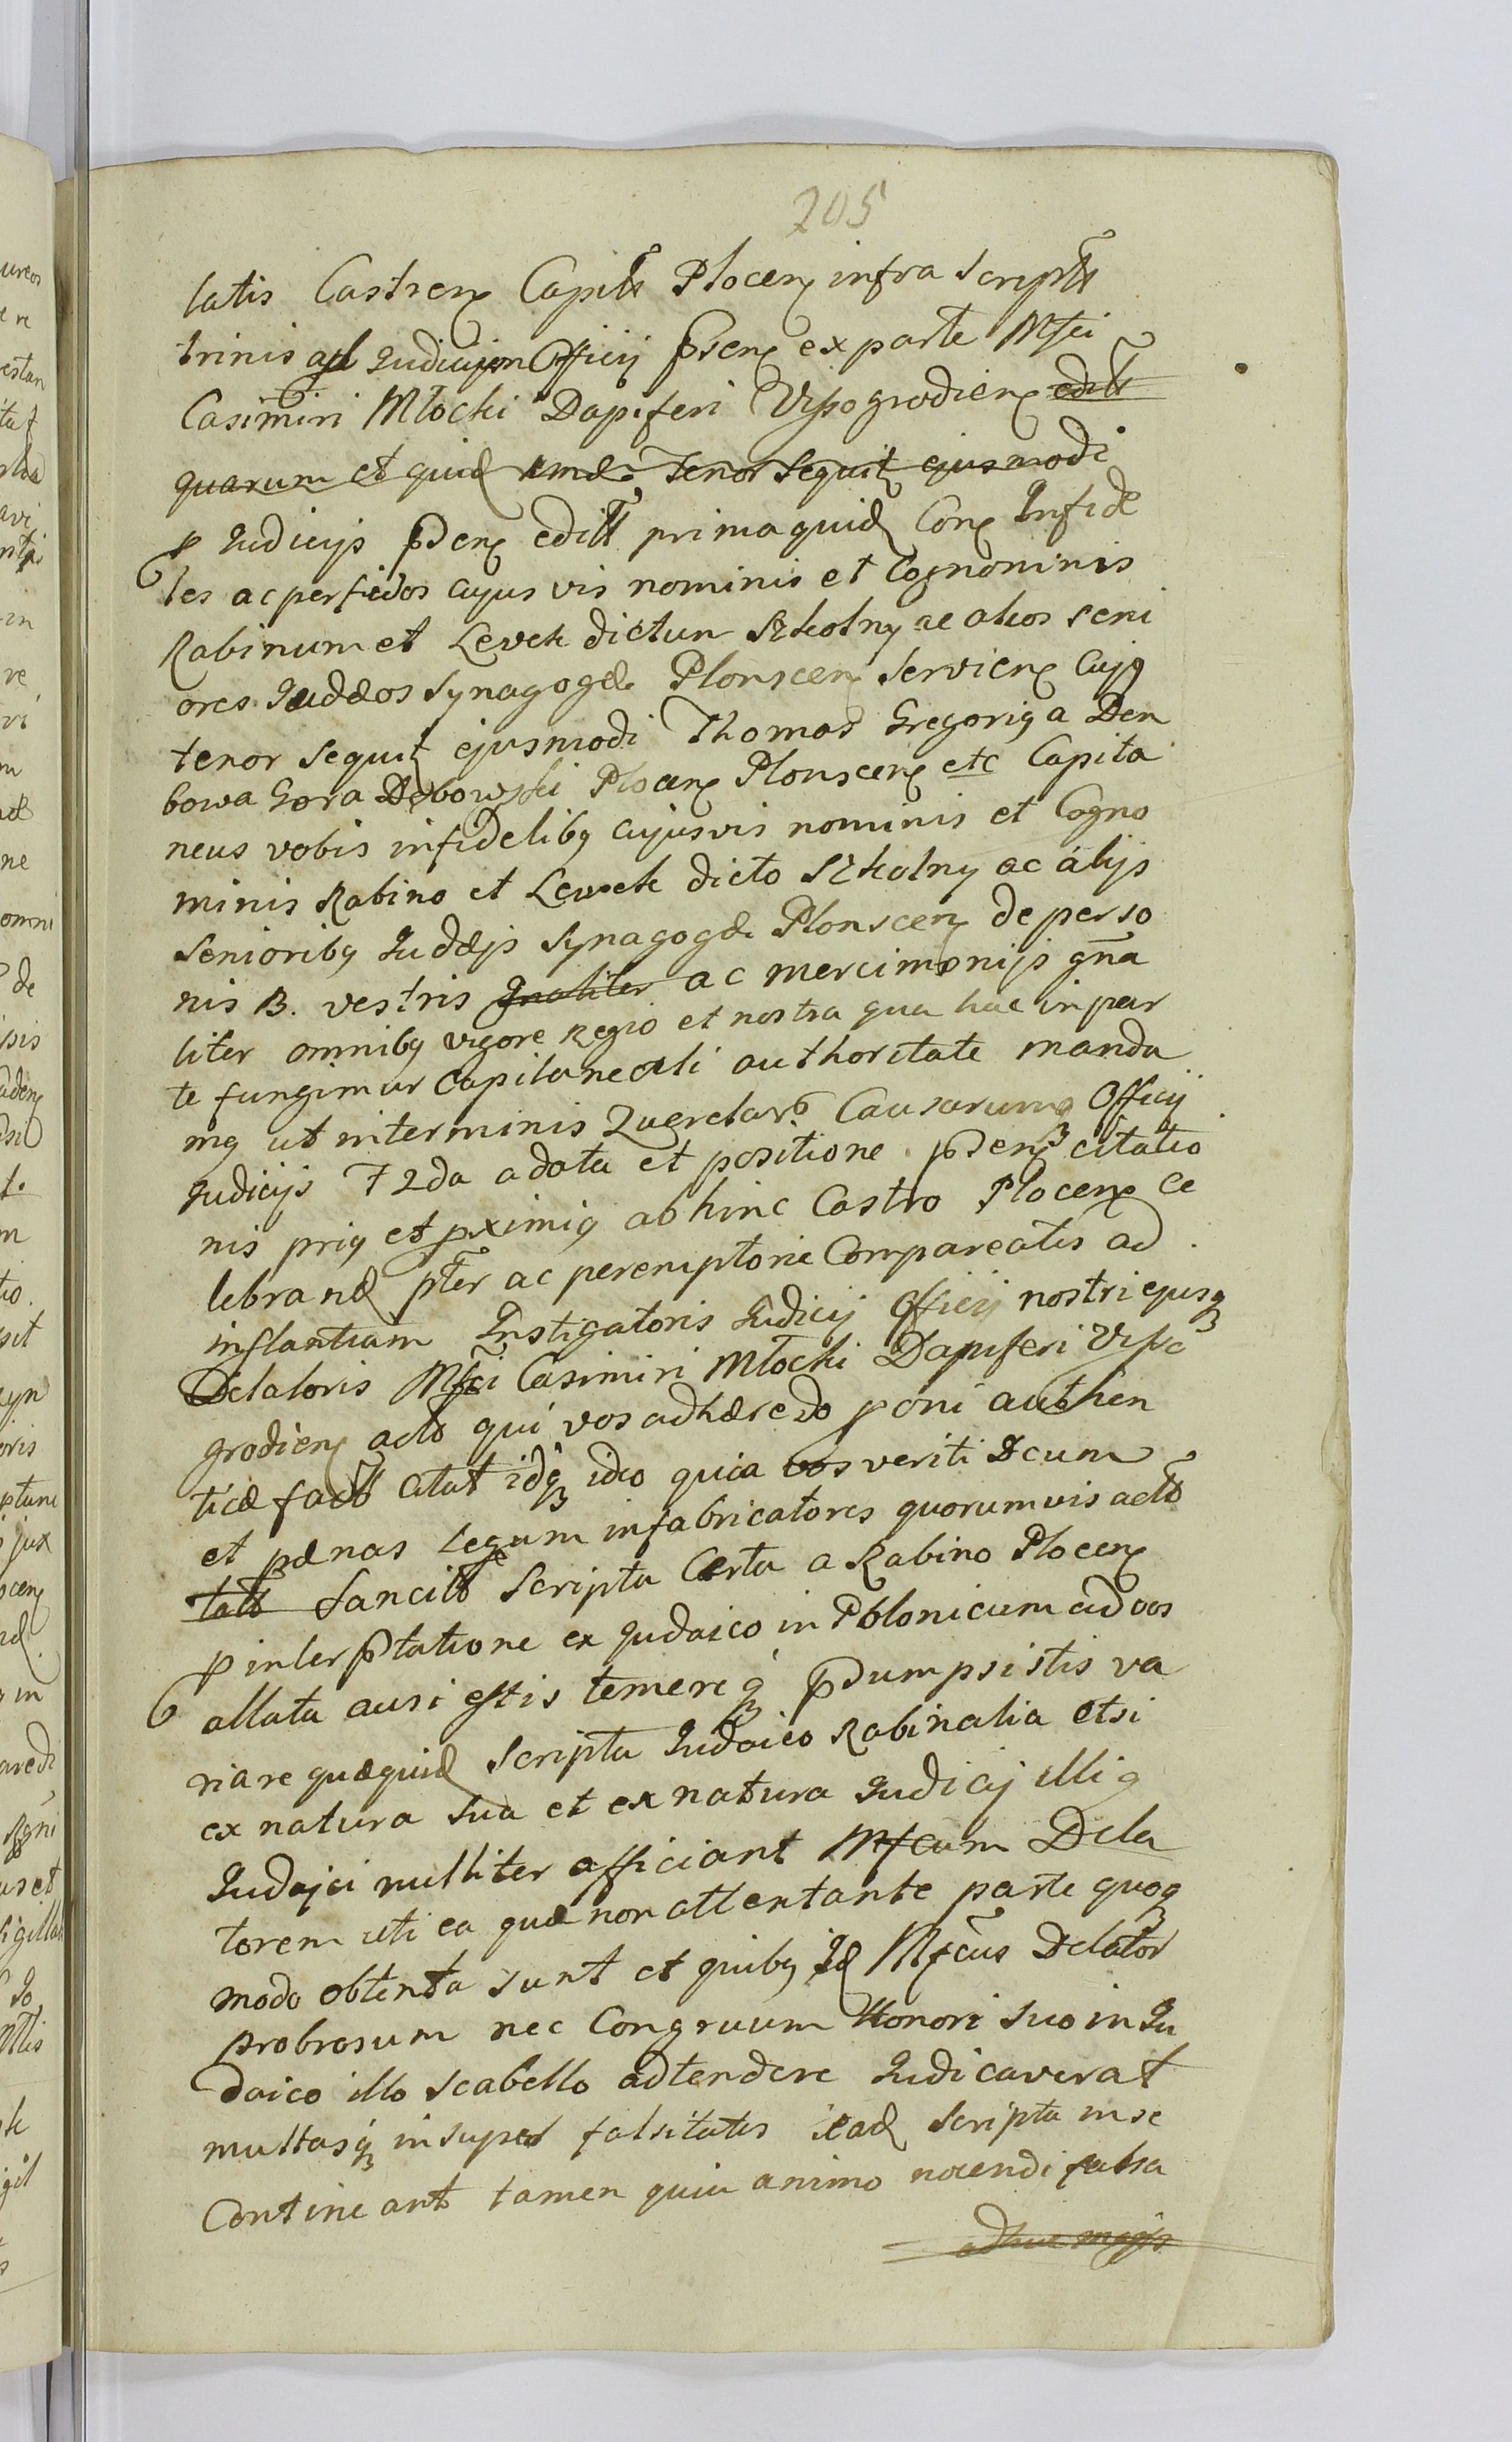 205
latis Castren Capitt Plocen infra scriptt
trinis ad Judicium Officij psen ex parte Mfci
Casimiri Młocki Dapiferi Vissogrodien editt
quarum et quid tenor sequit ejusmodi
p Judicijs psen editt prima quid Con Infide
les ac perfidos cujus vis nominis et Cognominis
Rabinum et Levek dictum Szkolny ac alios seni
ores Judæos Synagogæ Plonscen servien Cujq
tenor sequit ejusmodi Thomas Gregorig a Dem
bowa Gora Dębowski Plocen Plonscen etc Capita
neus vobis infidelibq cujusvis nominis et Cogno
minis Rabino et Lewek dicto Szkolny ac alijs
Senioribq Judæjs Synagogæ Plonscen de perso
nis B. vestris gnaliter ac mercimonijs gna
liter omnibq vigore Regio et nostra qua hac in par
te fungimur Capitaneali authoritate manda
mq ut in terminis Querelar Causarumq Officij
Judicijs F2da a data et positione psen citatio
nis priq et pximiq ab hinc Castro Plocen Ce
lebrand pter ac peremptorie Compareatis ad
instantiam Instigatoris Judicij Officij nostri ejusq
Delatoris Mfci Casimiri Młocki Dapiferi Visso
grodien actt qui vos adhærendo poni authen
ticæ factt citat idq ideo quia vos veriti Deum
et pænas Legum in fabricatores quorumvis actt
tatt Sancitt Scripta Certa a Rabino Plocen
p interptatione ex Judaico in Polonicum ad vos
allata ausi estis temereq psumpsistis va
riare quæquid Scripta Judaico Rabinalia etsi
ex natura sua et ex natura Judicij illiq
Judajci nulliter afficiant Mfcum Dela
torem uti ea quæ non attentante parte quoq
modo obtenta sunt et quibq Id Mfcus Delator
probrosum nec Congruum Honori suo in Ju
daico illo scabello adtendere Judicaverat
multasq insuper falsitates ead scripta in se
Contineant tamen quia animo nocendi falsa
adhuc magis